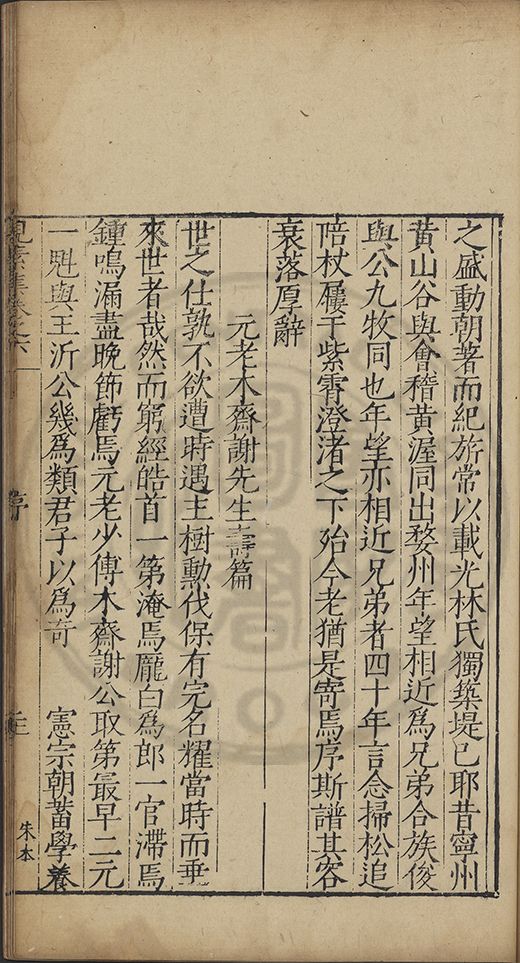 之盛動朝著而紀旂常以載光林氏獨築堤已耶昔寧州
黃山谷與會稽黃渥同出婺州年望相近為兄弟合族俊
與公九牧同也年望亦相近兄弟者四十年言念掃松追
陪杖屨于紫霄澄渚之下殆今老猶是寄焉序斯譜其容
衰落厚辭
元老木齋謝先生壽篇
世之仕孰不欲遭時遇主樹勳伐保有完名耀當時而垂
來世者哉然而窮經皓首一第淹焉龐白為郎一官滯焉
鍾鳴漏盡晚飾虧焉元老少傅木齋謝公取第最早二元
一魁與王沂公幾為類君子以為奇 憲宗朝蓄學養
見素集卷之六 序 三
朱本